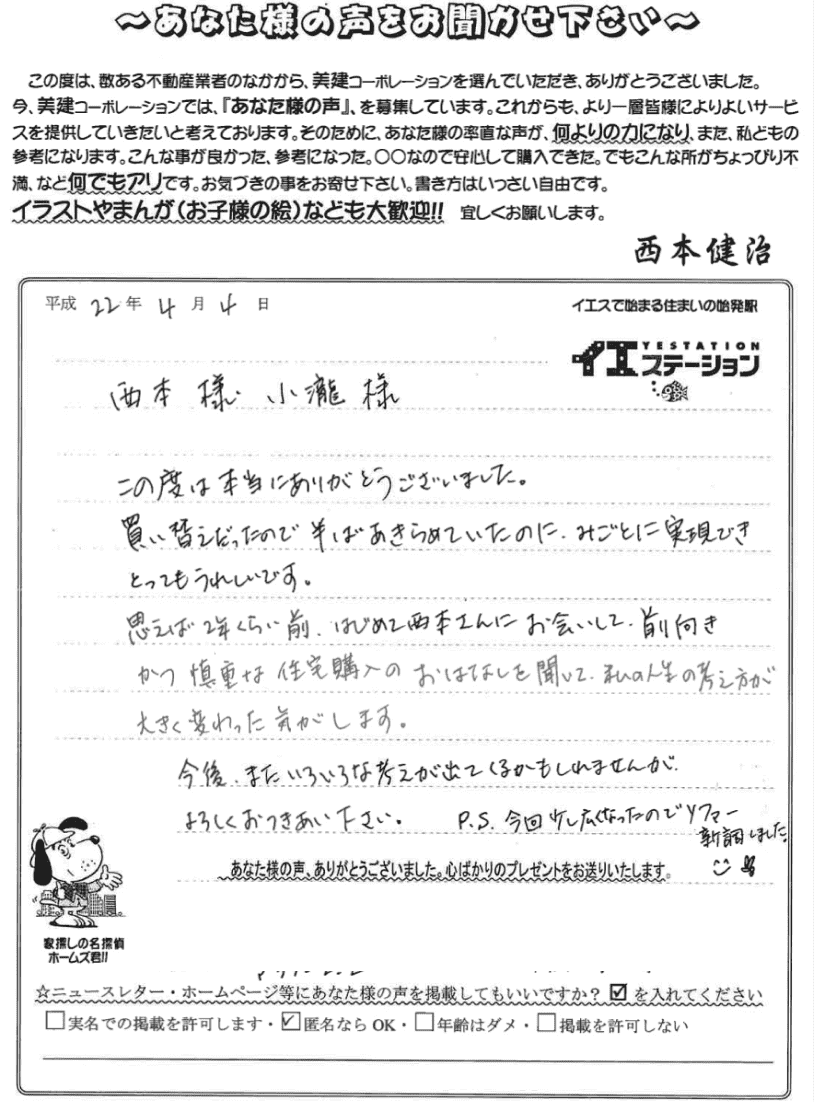 ～あなた様の声をお聞かせ下さい～
この度は、数ある不動産業者のなかから、美建コーポレーションを選んでいただき、ありがとうございました。
今、美建コーポレーションでは、『あなた様の声』、を募集しています。これからも、より一層皆様によりよいサービ
スを提供していきたいと考えております。そのために、あなた様の率直な声が、何よりの力になり、また、私どもの
参考になります。こんな事が良かった、参考になった。〇〇なので安心して購入できた。でもこんな所がちょっぴり不
満、など何でもアリです。お気づきの事をお寄せ下さい。書き方はいっさい自由です。
イラストやまんが(お子様の絵)なども大歓迎!! 宜しくお願いします。
西本健治
平成 22年 4月 4日
イエスで始まる住まいの始発駅
YESTATION
イエステーション
西本様 小瀧様
この度は本当にありがとうございました。
買い替えだったので半ばあきらめていたのに、みごとに実現でき
とってもうれしいです。
思えば2年くらい前、はじめて西本さんにお会いして、前向き
かつ慎重な住宅購入のおはなしを聞いて、私の人生の考え方が
大きく変わった気がします。
今後、またいろいろな考えが出てくるかもしれませんが、
よろしくおつきあい下さい。 P.S. 今回少し広くなったのでソファー
新調しました。
あなた様の声、ありがとうございました。心ばかりのプレゼントをお送りいたします。
家探しの名探偵
ホームズ君!!
☆ニュースレター・ホームページ等にあなた様の声を掲載してもいいですか？☑を入れてください
□実名での掲載を許可します・☑匿名ならOK・□年齢はダメ・□掲載を許可しない